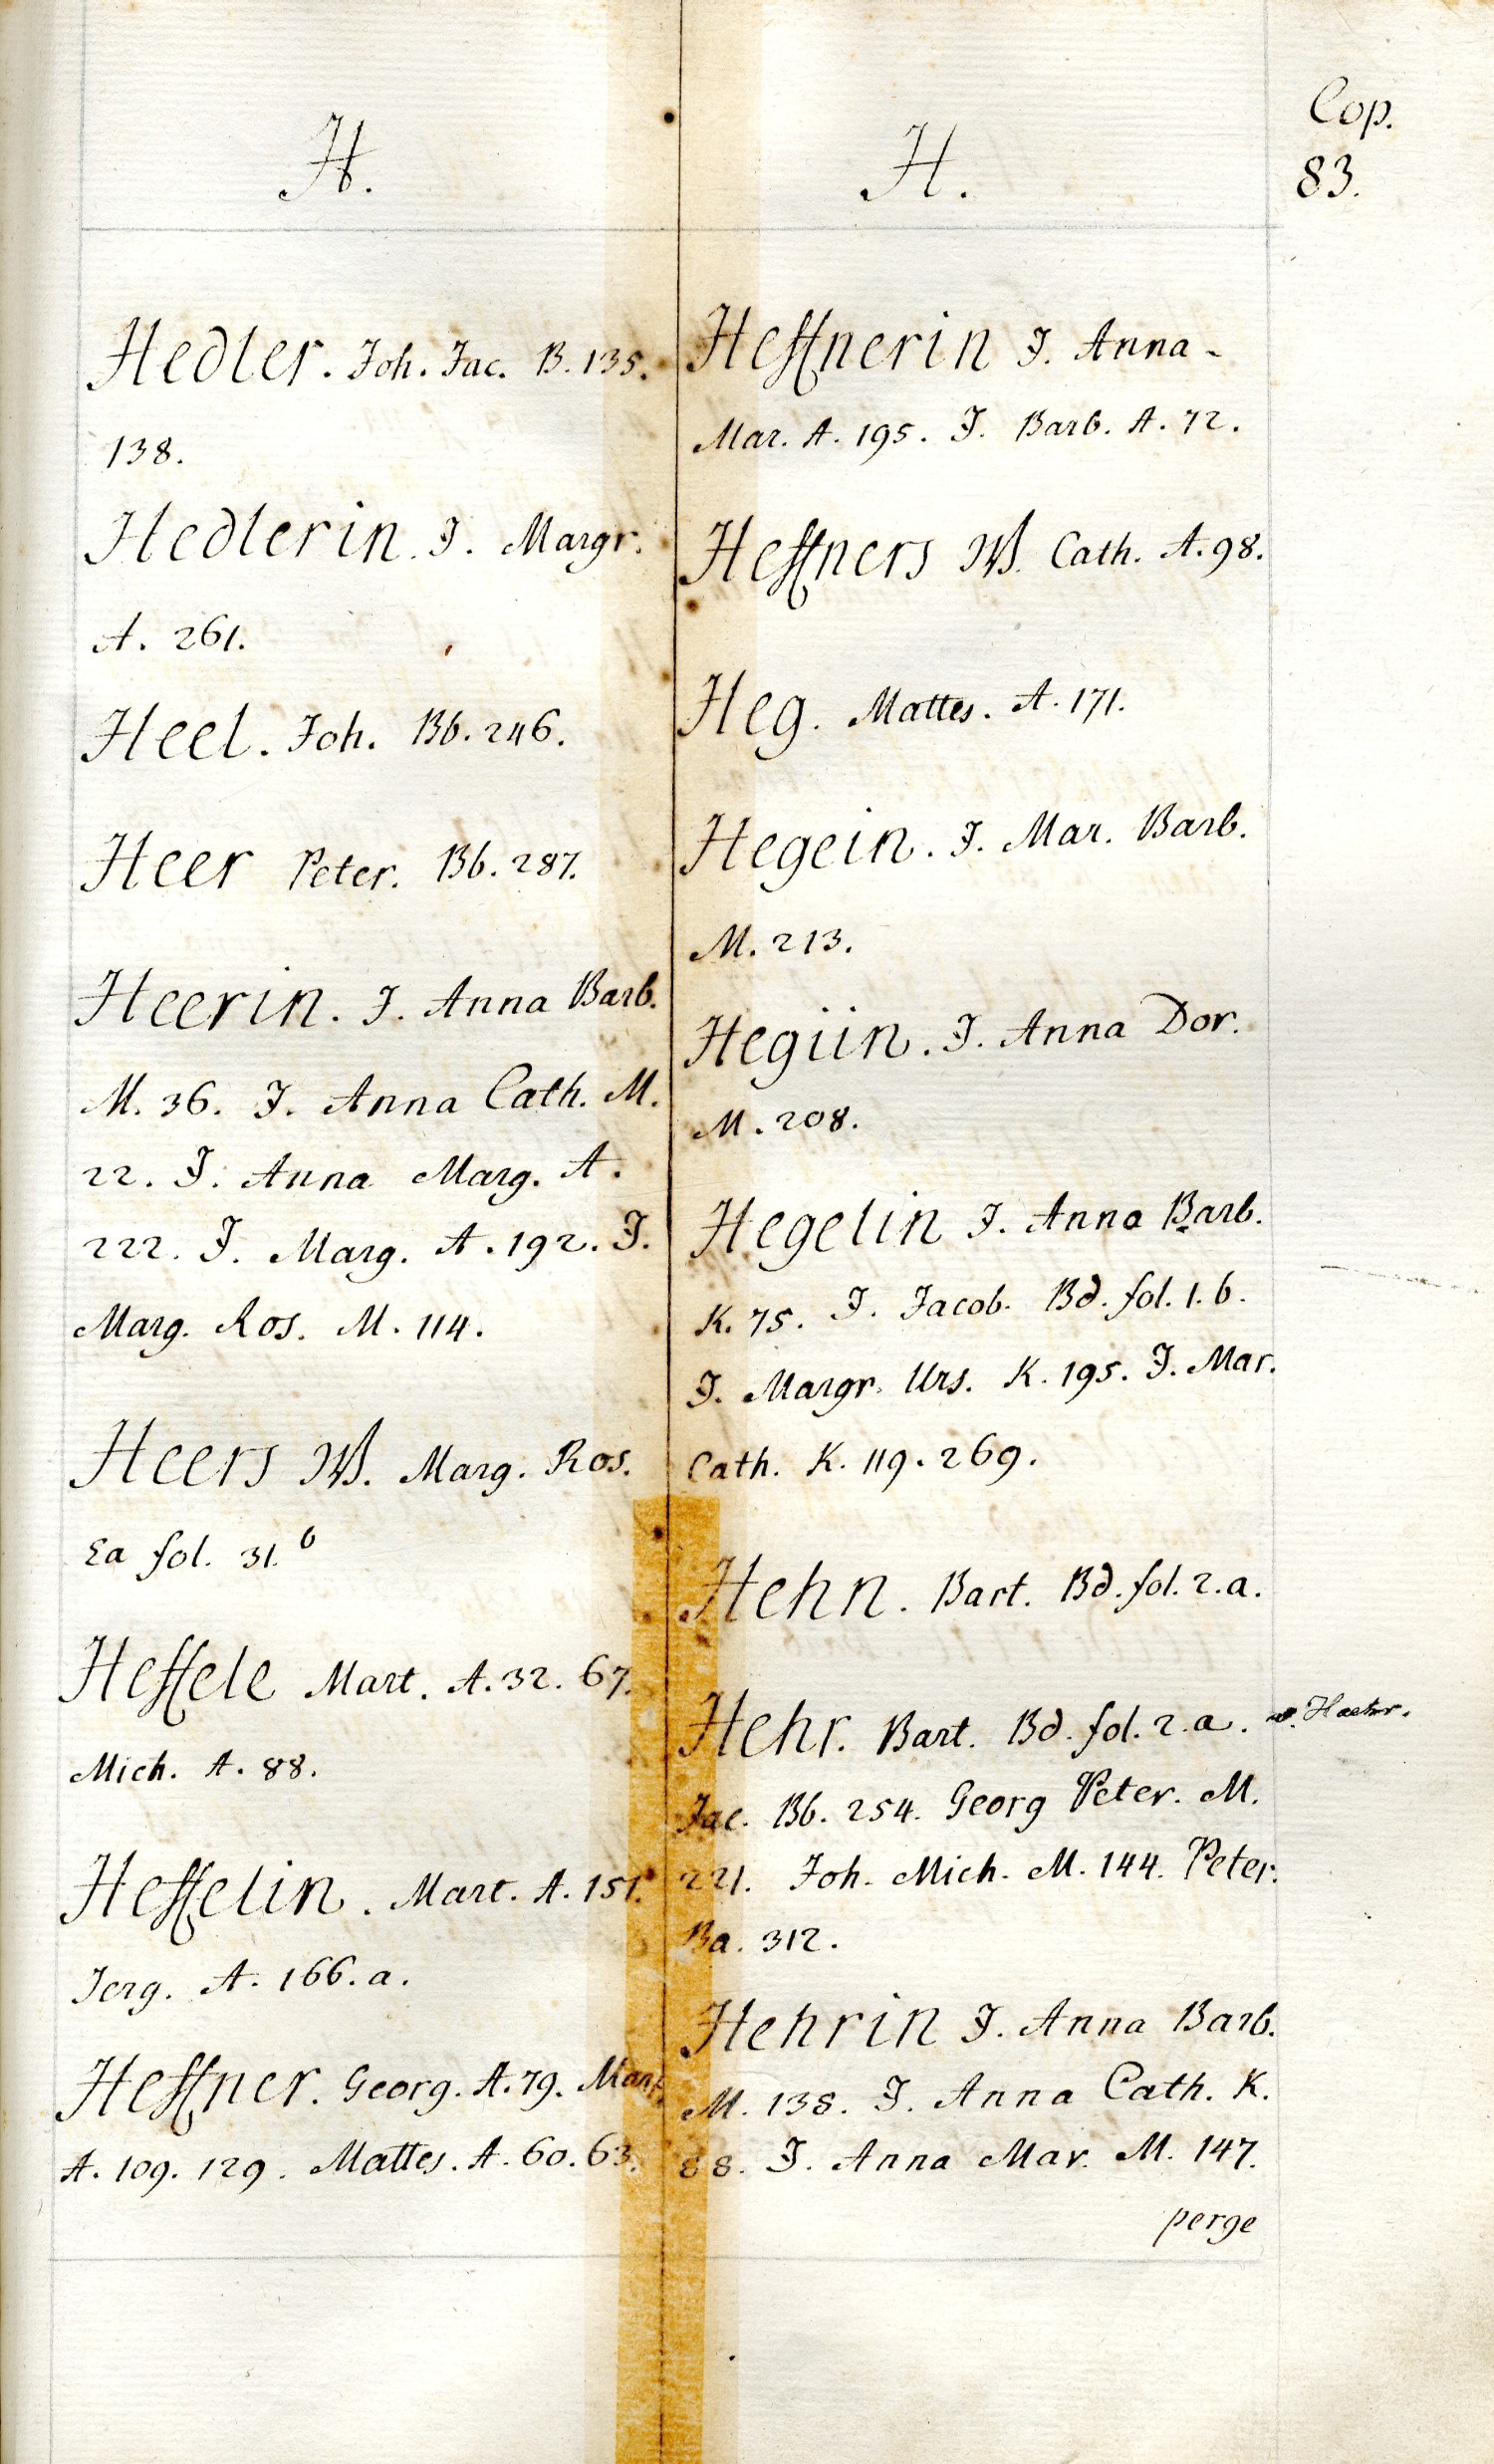 H.
Hedler. Joh. Jac. B. 135.
138.
Hedlerin. J. Margr.
A. 261.
Heel. Joh. Bb. 246.
Heer Peter. Bb. 287.
Heerin. J. Anna Barb.
M. 36. J. Anna Cath. M.
22. J. Anna Marg. A.
222. J. Marg. A. 192. J.
Marg. Ros. M. 114.
Heers W. Marg. Ros.
Ea fol. 31. b
Heffele Mart. A. 32. 67.
Mich. A. 88.
Heffelin. Mart. A. 151.
Jerg. A. 166. a.
Heffner. Georg. A. 79. Mart.
A. 109. 129. Mattes. A. 60. 63.
H.
Heffnerin J. Anna -
Mar. A. 195. J. Barb. A. 72.
Heffners W. Cath. A. 98.
Heg. Mattes. A. 171.
Hegein. J. Mar. Barb.
M. 213.
Hegiin. J. Anna Dor.
M. 208.
Hegelin J. Anna Barb.
K. 75. J. Jacob. Bd. fol. 1. b.
J. Margr. Urs. K. 195. J. Mar.
Cath. K. 119. 269.
Hehn. Bart. Bd. fol. 2. a.
Hehr. Bart. Bd. fol. 2. a. v. Haehr.
Jac. Bb. 254. Georg Peter. M.
221. Joh. Mich. M. 144. Peter.
Ba. 312.
Hehrin J. Anna Barb.
M. 138. J. Anna Cath. K.
88. J. Anna Mar. M. 147.
perge
Cop.
83.